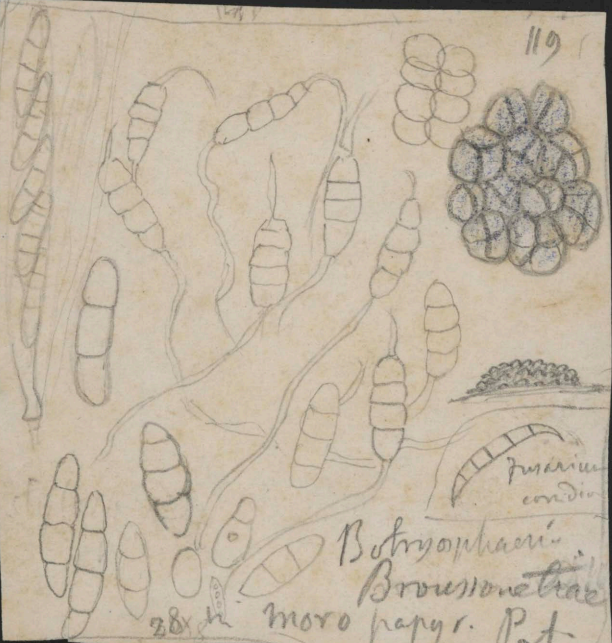 119
Fusarium
conidia
Botryosphaeria
Broussonetiae
moro papyr. P.